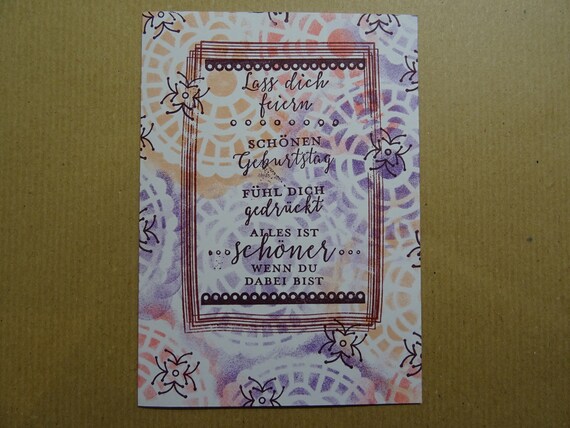 Lass dich
feiern
SCHÖNEN
Geburtstag
FÜHL DICH
gedrückt
ALLES IST
schöner
WENN DU
DABEI BIST